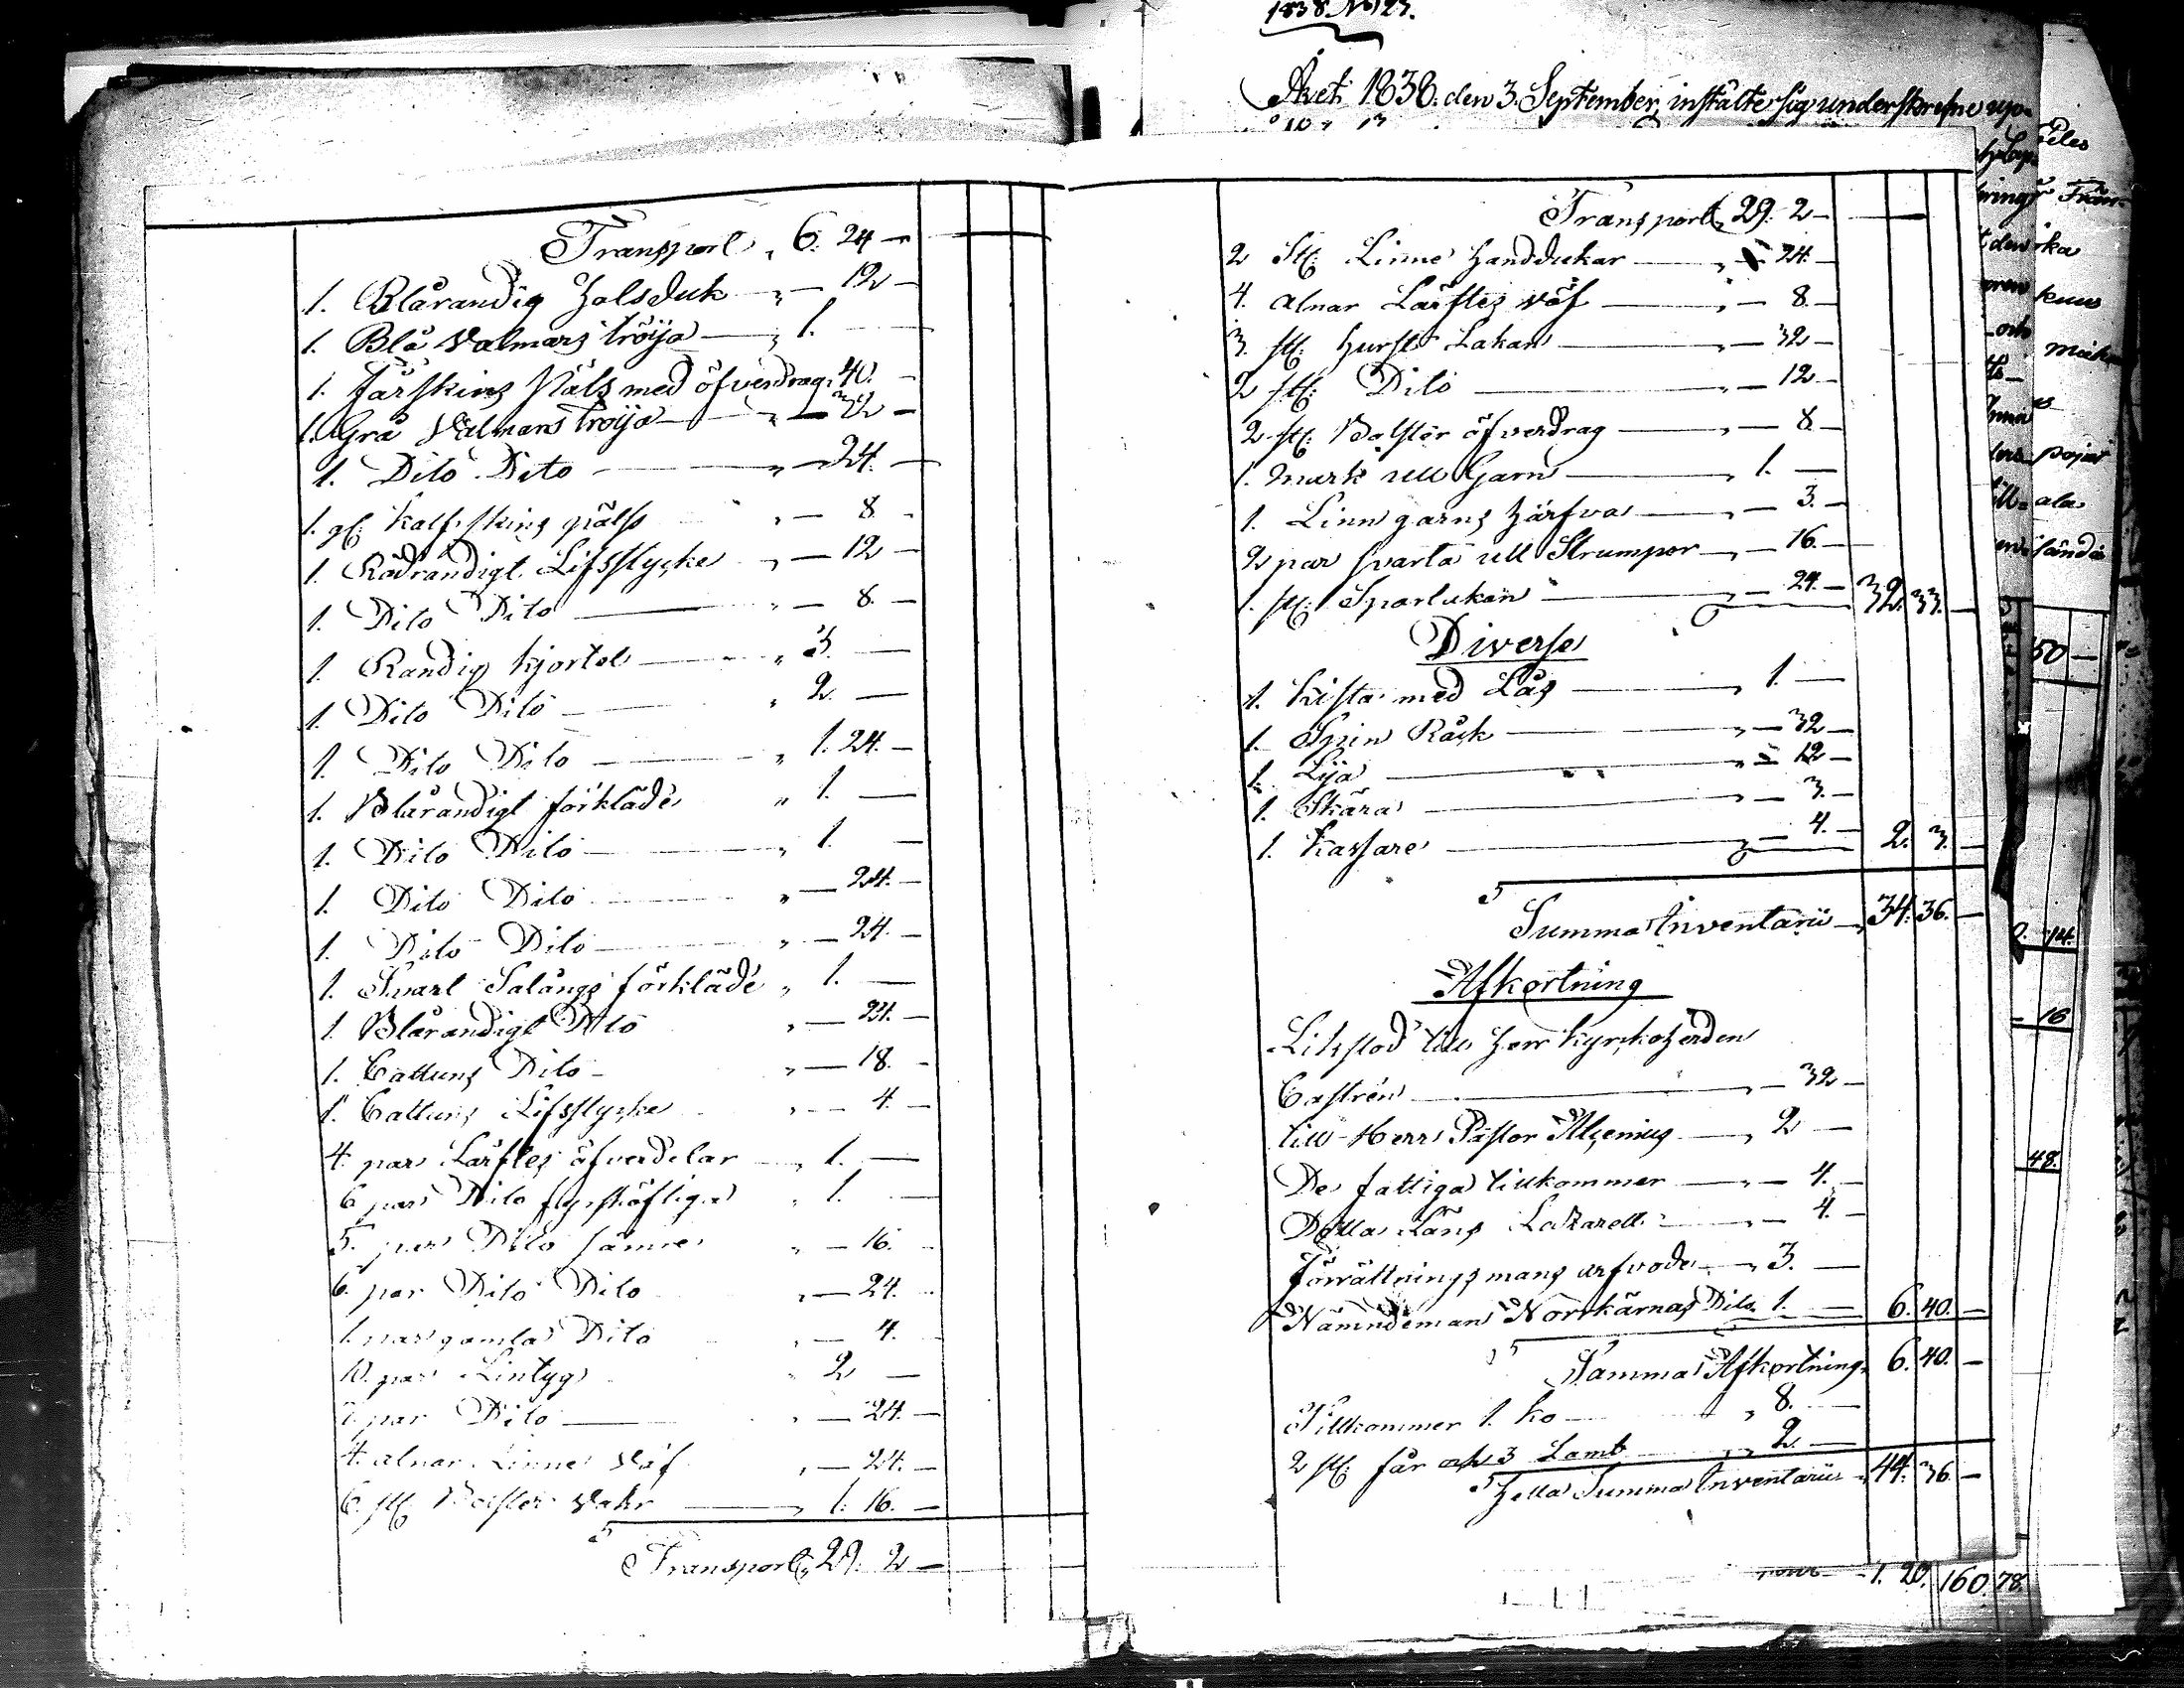 Transport „ 6. 24 —
1. Blårandig Halsduk „ — 12 —
1. Blå Valmars tröja — „ 1. —
1. Fårskins Päls med öfverdrag „ 40. —
1. Grå Valmars Tröja — „ — 32 —
1. Dito Dito — „ — 24. —
1. gl. Kalfskins päls „ — 8
1. Rödrandigt Lifstycke „ — 12 —
1. Dito Dito — „ — 8. —
1. Randig Kjortel — „ 3. —
1. Dito Dito — „ 2. —
1. Dito Dito — „ 1. 24. —
1. Blårandigt förkläde „ 1. —
1. Dito Dito — „ 1. —
1. Dito Dito — „ — 24. —
1. Dito Dito — „ — 24. —
1. Svart Salångs förkläde „ 1. —
1. Blårandigt Dito „ — 24. —
1. Cattuns Dito — „ — 18. —
1. Cattuns Lifstycke „ — 4. —
4. par Lärfts öfverdelar — „ 1. —
6 par Dito fyrskäftiga „ 1. —
5. par Dito sämre „ — 16. —
6. par Dito Dito „ — 24. —
1. par gamla Dito „ — 4. —
10. par Lintyg „ 2 —
par Dito — „ — 24. —
4. alnar Linne Väf „ — 24. —
6. st. Bolster Vahr — „ 1. 16. —
Transport „ 29. 2 —
1838 No 123.
Året 1838. den 3. September, instälte sig underskrefne uppå
Transport „ 29. 2 —
2 st. Linne Handdukar — „ — 24. —
4. alnar Lärfts Väf — „ — 8. —
3. st. Hurst Lakan — „ — 32 —
2 st. Dito — „ — 12 —
2 st. Bolster öfverdrag — „ — 8. —
1. mark ull Garn — „ 1. —
1. Linn garns Härfva — „ — 3. —
2 par svarta ull Strumpor — „ — 16. —
1. st. Sparlakan — „ — 24. — 32. 33. —
Diverse
1. Kista med Lås — „ 1. —
1. Spin Råck — „ — 32 —
1. Lija — „ — 12 —
1. Skära — „ — 3. —
1. Kassare — „ — 4. — 2. 3. —
Summa Inventarii „ 34. 36. —
Afkortning
Likstod till Herr Kyrkoherden
Castrén — „ — 32 —
till Herr Pastor Alcenius — „ 2 —
De fattiga tillkommer — „ — 4. —
Dotta Läns Lazarett — „ — 4. —
Förrättningsmans arfvode — „ 3. —
Nämndeman Norrkärnas Dito „ 1. — 6. 40. —
Summa Afkortning „ 6. 40. —
Tillkommer 1. ko — „ 8. —
2 st. får och 3 Lamb — „ 2. —
Hella Summa Inventarii „ 44. 36 —
1. 20. 160. 78.
50 —
14.
16
48.